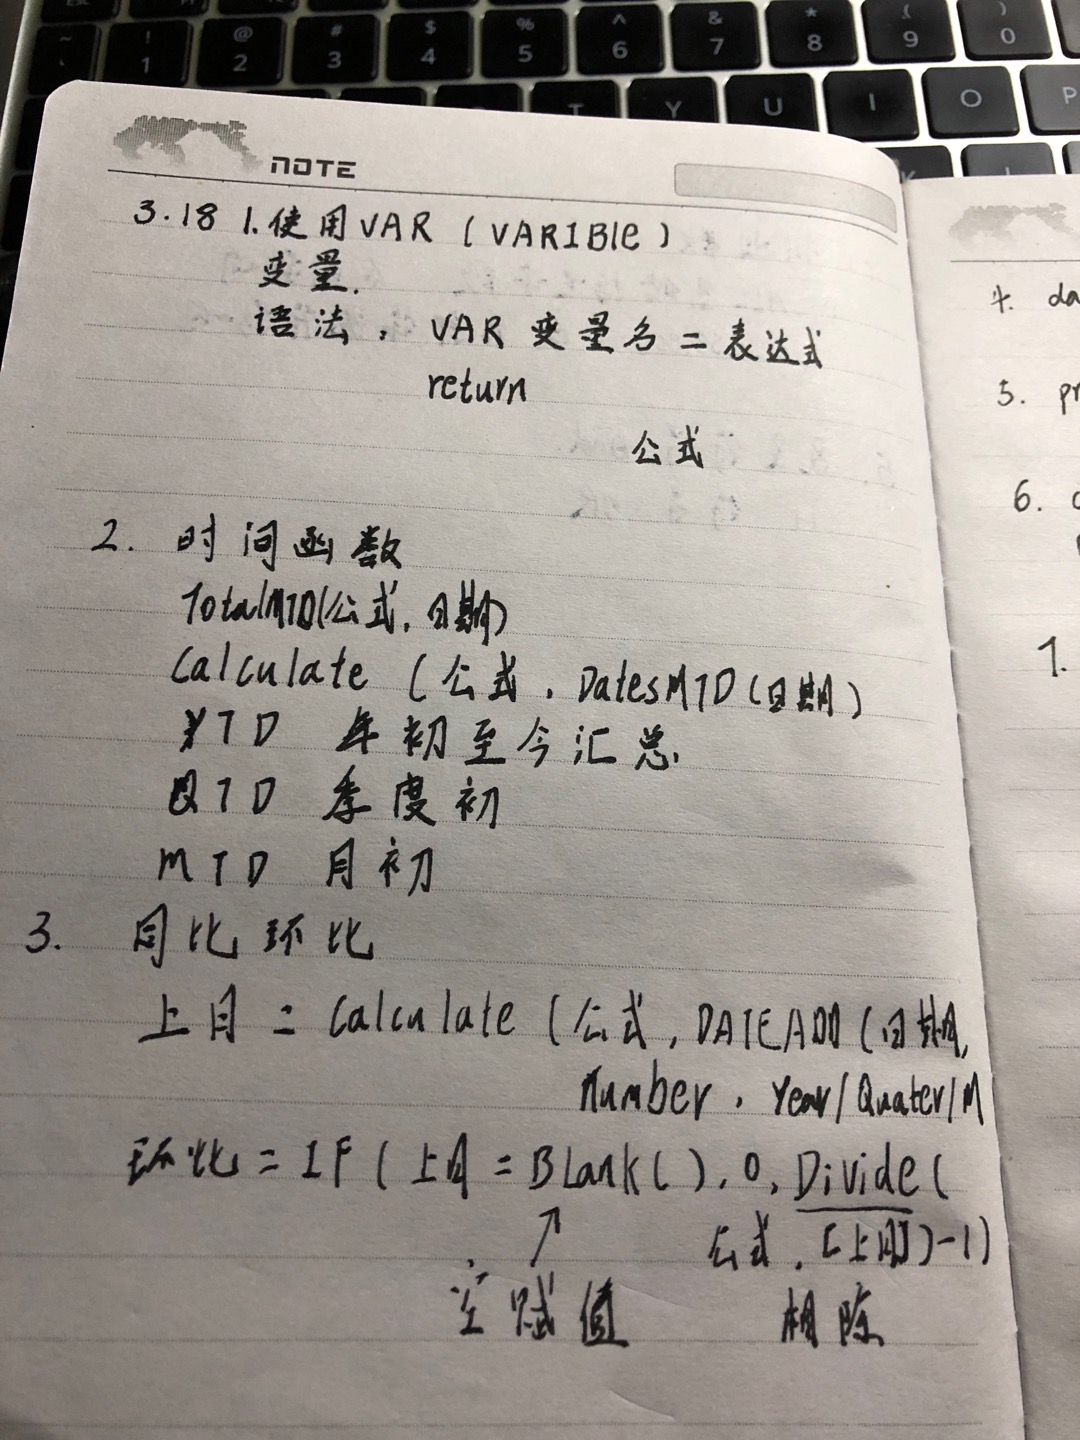 NOTE
3.18 1.使用VAR (VARIBle)
变量.
语法, VAR 变量名=表达式
return
公式
2. 时间函数
TotalMTD(公式, 日期)
Calculate (公式, DatesMTD(日期)
YTD 年初至今汇总.
QTD 季度初
MTD 月初
3. 同比环比
上月 = Calculate (公式, DATEADD (日期,
Number, Year/Quater/M
环比=IF(上月=BLank(),0,Divide(
公式, [上月])-1)
空赋值 相除
7. da
5. pr
6. c
1.
~ ! @ # $ % ^ & * ( )
1 2 3 4 5 6 7 8 9 0
T Y U I O P